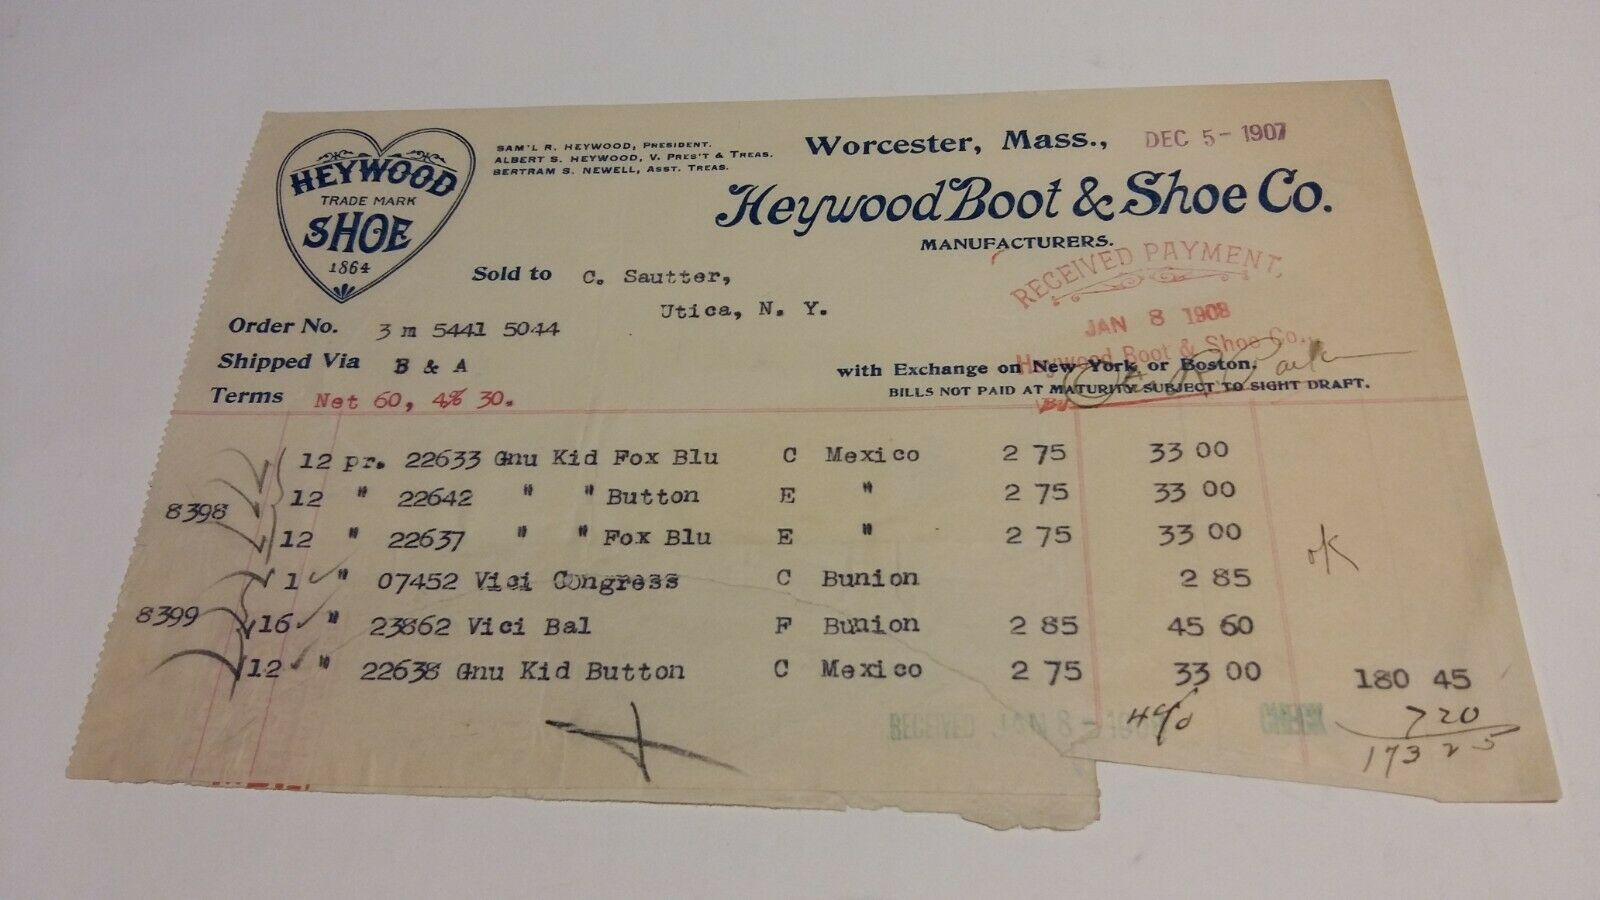 HEYWOOD
TRADE MARK
SHOE
1864
SAM'L R. HEYWOOD, PRESIDENT.
ALBERT S. HEYWOOD, V. PRES'T & TREAS.
BERTRAM S. NEWELL, ASST. TREAS.
Worcester, Mass., DEC 5 - 1907
Heywood Boot & Shoe Co.
MANUFACTURERS.
RECEIVED PAYMENT,
JAN 8 1908
Heywood Boot & Shoe Co.,
Sold to C. Sautter,
Utica, N. Y.
Order No. 3 m 5441 5044
Shipped Via B & A
with Exchange on New York or Boston.
Terms Net 60, 4% 30.
BILLS NOT PAID AT MATURITY SUBJECT TO SIGHT DRAFT.
By
12 pr. 22633 Gnu Kid Fox Blu C Mexico 2 75 33 00
8398 12 " 22642 " " Button E " 2 75 33 00
12 " 22637 " " Fox Blu E " 2 75 33 00
ok
1 " 07452 Vici Congress C Bunion 2 85
8399 16 " 23862 Vici Bal F Bunion 2 85 45 60
12 " 22638 Gnu Kid Button C Mexico 2 75 33 00 180 45
RECEIVED JAN 8 - 1908 4% CHECK 7 20
173 25